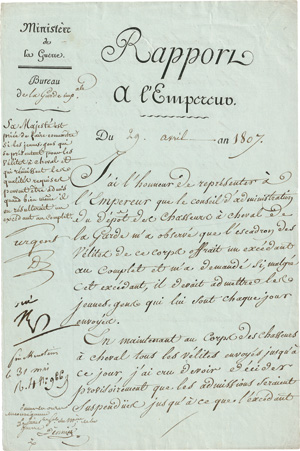 Ministère
de
la Guerre.
Bureau
de la Garde imp.ale
Rapport
A l'Empereur.
Du 29 avril an 1807.
Sa Majesté est
priée de faire connaître
si les jeunes gens qui
se présentent pour les
Vélites à cheval et
qui réunissent les
qualités requises
peuvent être admis
quand bien même il
en résulterait un
excédant au complet.
urgent
J'ai l'honneur de représenter à
l'Empereur que le conseil d'administration
du dépôt des Chasseurs à cheval de
la Garde m'a observé que l'escadron des
Vélites de ce corps offrait un excédant
au Complet et m'a demandé si, malgré
cet excédant, il devait admettre les
jeunes gens qui lui sont chaque jour
envoyés.
En maintenant au Corps des chasseurs
à cheval tous les vélites envoyés jusqu'à
ce jour j'ai cru devoir décider
provisoirement que les admissions seraient
suspendues jusqu'à ce que l'excédant
31 mai